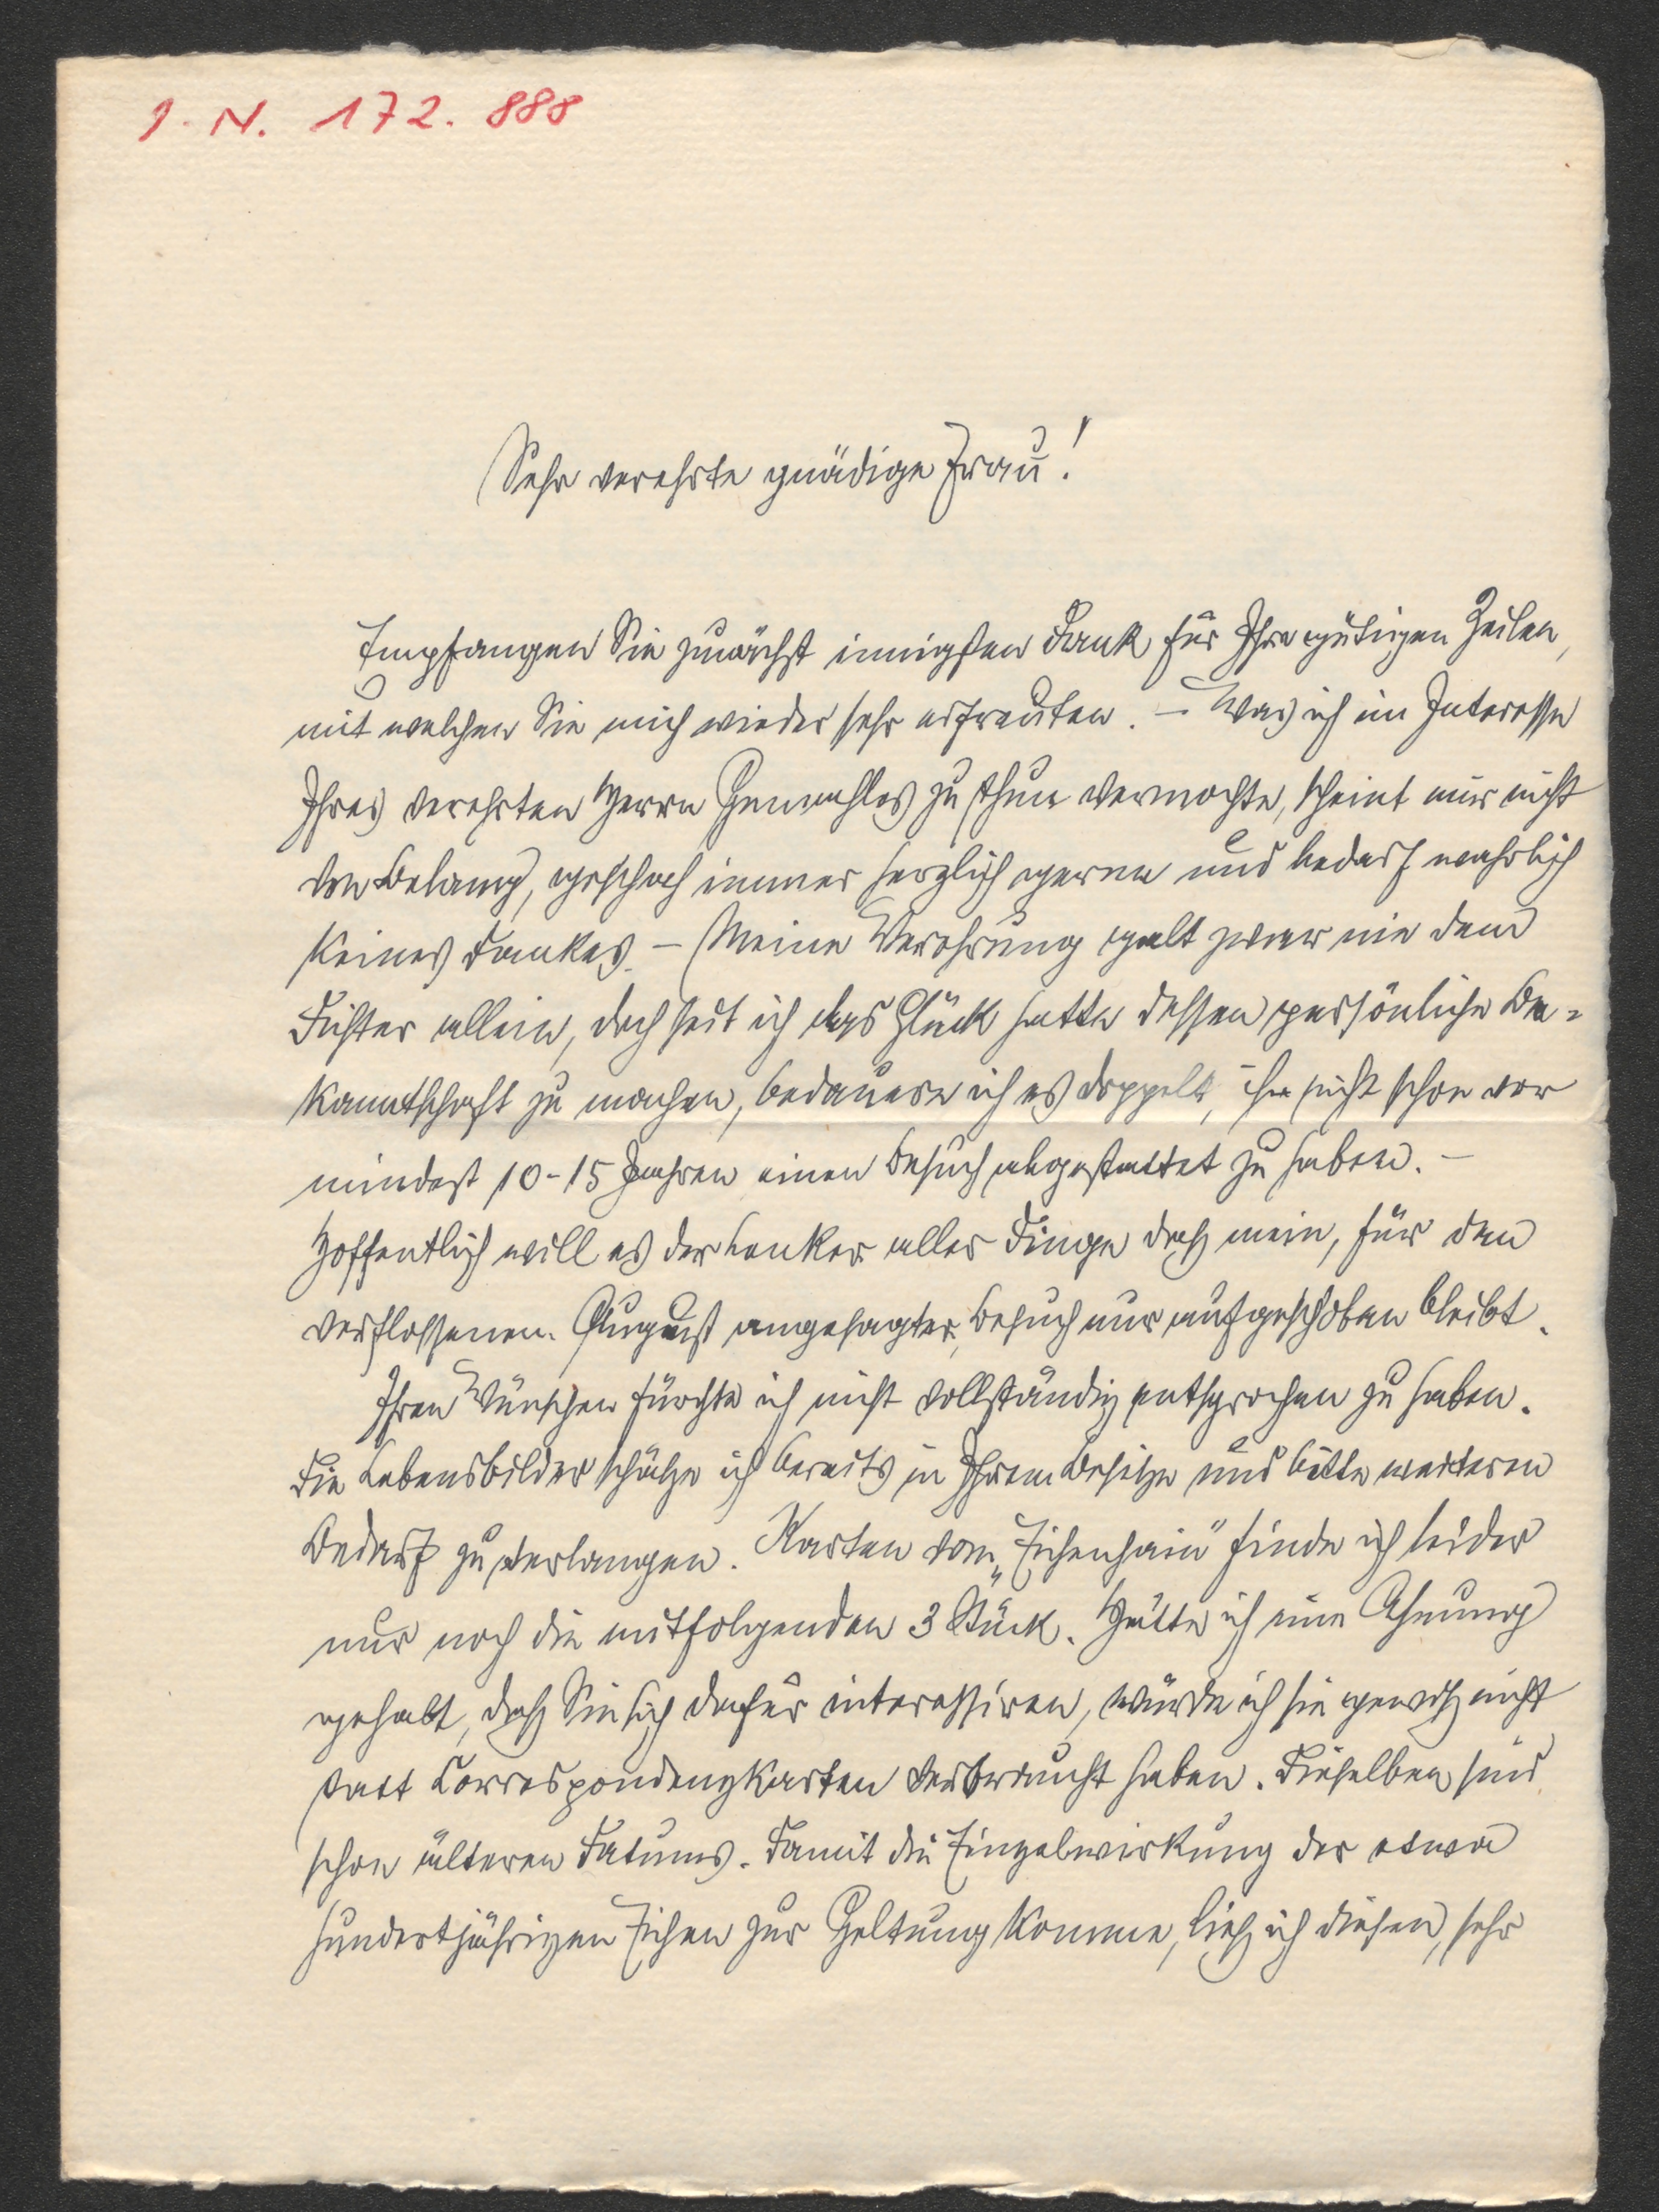 J. N. 172.888
Sehr verehrte gnädige Frau!
Empfangen Sie zunächst innigsten Dank für Ihre gütigen Zeilen,
mit welchen Sie mich wieder sehr erfreuten. – Was ich im Interesse
Ihres verehrten Herrn Gemahles zu thun vermochte, scheint mir nicht
von Belang, geschah immer herzlich gerne und bedarf wahrlich
keines Dankes. – Meine Verehrung galt zwar nie dem
Dichter allein, doch seit ich das Glück hatte dessen persönliche Be=
kanntschaft zu machen, bedauere ich es doppelt, ihn nicht schon vor
mindest 10-15 Jahren einen Besuch abgestattet zu haben. –
Hoffentlich will es der Lenker aller Dinge daß mein, für den
verflossenen August angesagter, Besuch nur aufgeschoben bleibt.
Ihren Wünschen fürchte ich nicht vollständig entsprochen zu haben.
Die Lebensbilder schätze ich bereits in Ihrem Besitze und bitte weiteren
Bedarf zu verlangen. Karten vom „Eichenhain" finde ich leider
nur noch die mitfolgenden 3 Stück. Hätte ich eine Ahnung
gehabt, daß Sie sich dafür interessiren, würde ich sie gewiß nicht
statt Correspondenzkarten verbraucht haben. Dieselben sind
schon älteren Datums. Damit die Einzelwirkung der etwa
hundertjährigen Eichen zur Geltung komme, ließ ich diesen, sehr